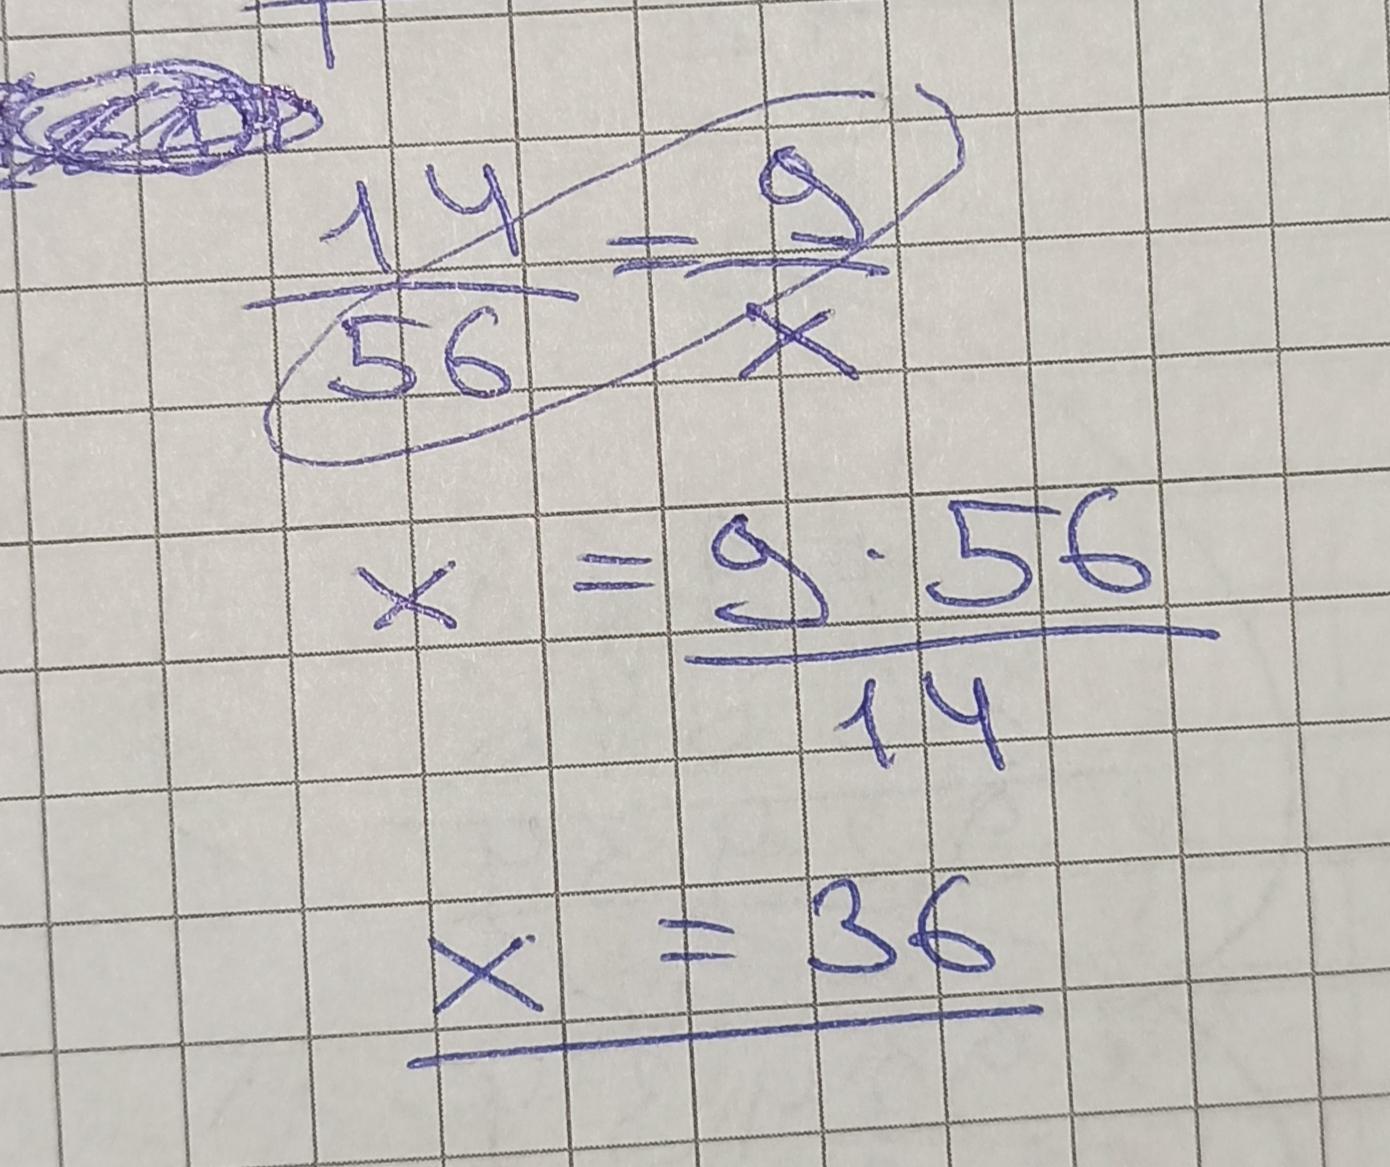 14/56 = 9/x
x = 9 · 56 / 14
x = 36